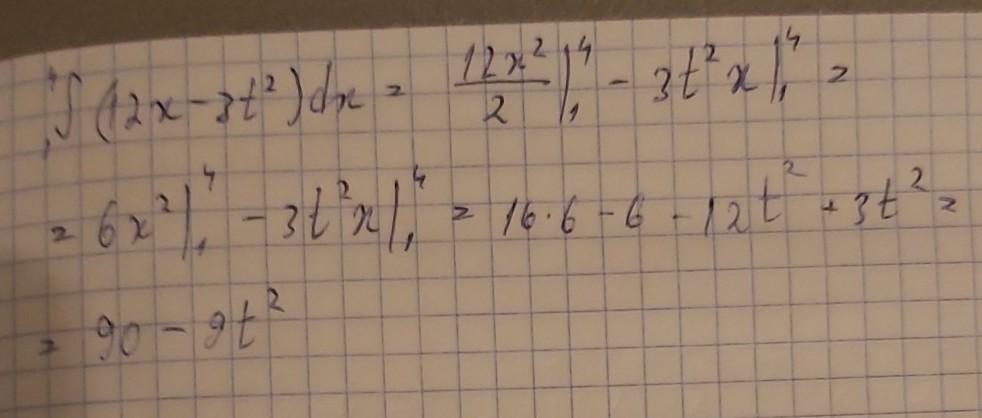 ₁⁴∫(12x - 3t²)dx = 12x²/2 |₁⁴ - 3t²x |₁⁴ =
= 6x² |₁⁴ - 3t²x |₁⁴ = 16·6 - 6 - 12t² + 3t² =
= 90 - 9t²